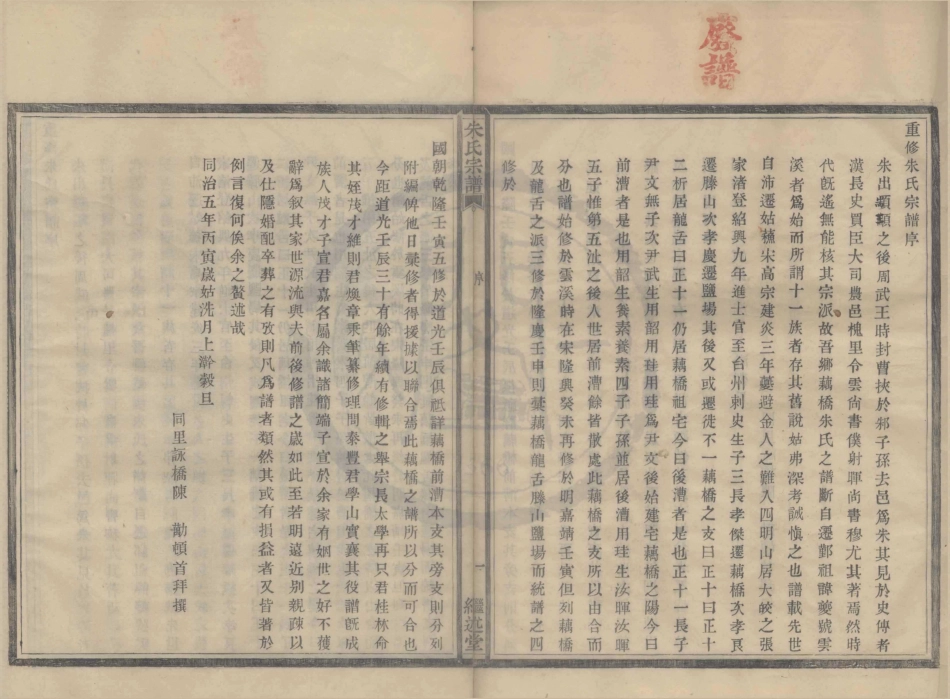 啓譜
重修朱氏宗譜序
朱出顓頊之後周武王時封曹挾於邾子孫去邑爲朱其見於史傳者
漢長史買臣大司農邑槐里令雲尙書僕射暉尙書穆尤其著焉然時
代旣遙無能核其宗派故吾鄉藕橋朱氏之譜斷自遷鄞祖諱夔號雲
溪者爲始而所謂十一族者存其舊說姑弗深考誠愼之也譜載先世
自沛遷姑蘓宋高宗建炎三年夔避金人之難入四明山居大皎之張
家渚登紹興九年進士官至台州刺史生子三長孝傑遷藕橋次孝良
遷滕山次孝慶遷鹽場其後又或遷徙不一藕橋之支曰正十曰正十
二析居龍舌曰正十一仍居藕橋祖宅今曰後漕者是也正十一長子
尹文無子次尹武生用韶用珪用珪爲尹文後始建宅藕橋之陽今曰
前漕者是也用韶生養素養素四子子孫並居後漕用珪生汝暉汝暉
五子惟第五沚之後入世居前漕餘皆散處此藕橋之支所以由合而
分也譜始修於雲溪時在宋隆興癸未再修於明嘉靖壬寅但列藕橋
及龍舌之派三修於隆慶壬申則冀藕橋龍舌滕山鹽場而統譜之四
修於
朱氏宗譜
序
一
繼述堂
國朝乾隆壬寅五修於道光壬辰俱祗詳藕橋前漕本支其旁支則分列
附編俾他日彙修者得援據以聯合焉此藕橋之譜所以分而可合也
今距道光壬辰三十有餘年續有修輯之舉宗長太學再只君桂林命
其姪茂才維則君煥章秉筆纂修理問秦豐君學山實襄其役譜旣成
族人茂才子宣君嘉名屬余識諸簡端子宣於余家有姻世之好不獲
辭爲叙其家世源流與夫前後修譜之歲如此至若明遠近别親疎以
及仕隱婚配卒葬之有攷則凡爲譜者類然其或有損益者又皆著於
例言復何俟余之贅述哉
同治五年丙寅歲姑洗月上澣穀旦
同里詠橋陳　勱頓首拜撰